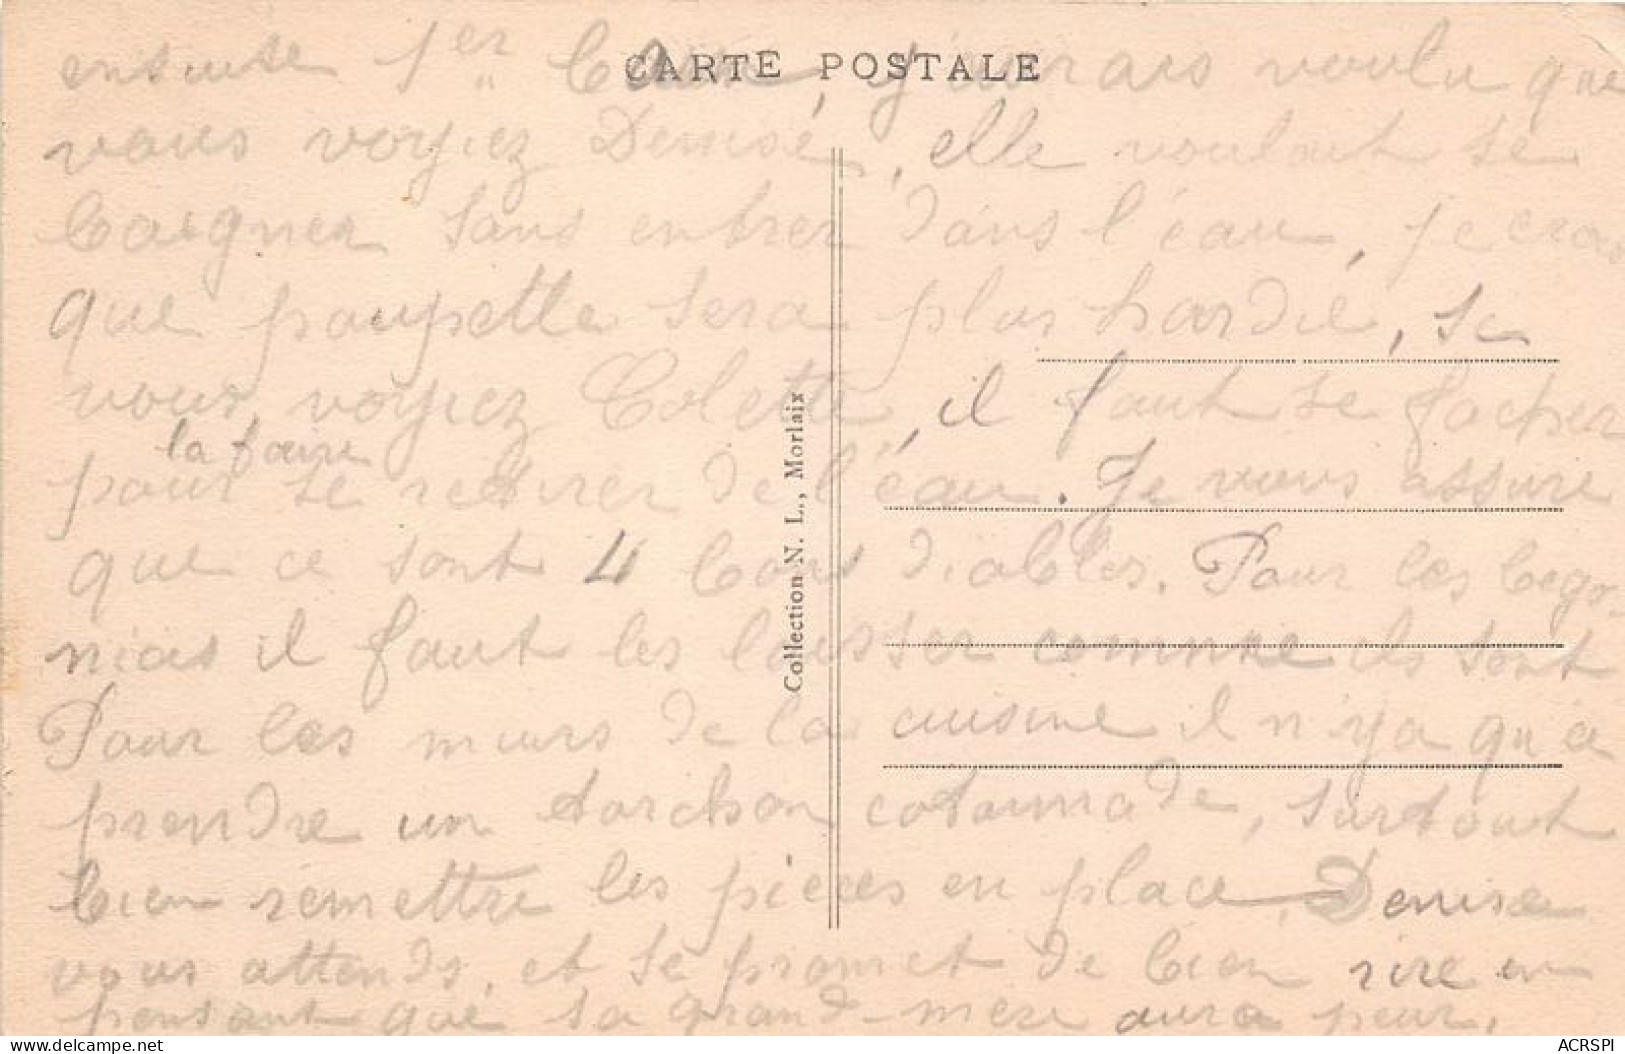 CARTE POSTALE
ensuite 1er bain, j'aurais voulu que
vous voyiez Denise, elle voulait se
baigner sans entrer dans l'eau, je crois
que poupette sera plus hardie, si
vous voyiez Colette, il faut se facher
la faire
pour se retirer de l'eau. Je vous assure
que ce sont 4 bons diables. Pour les bego-
nias il faut les laisser comme ils sont
Pour les murs de la cuisine il n'y a qu'a
prendre un torchon cotonnade, surtout
bien remettre les pièces en place, Denise
vous attends, et se promet de bien rire en
pensant que sa grand-mère aura peur.
Collection N. L., Morlaix
ACRSPI